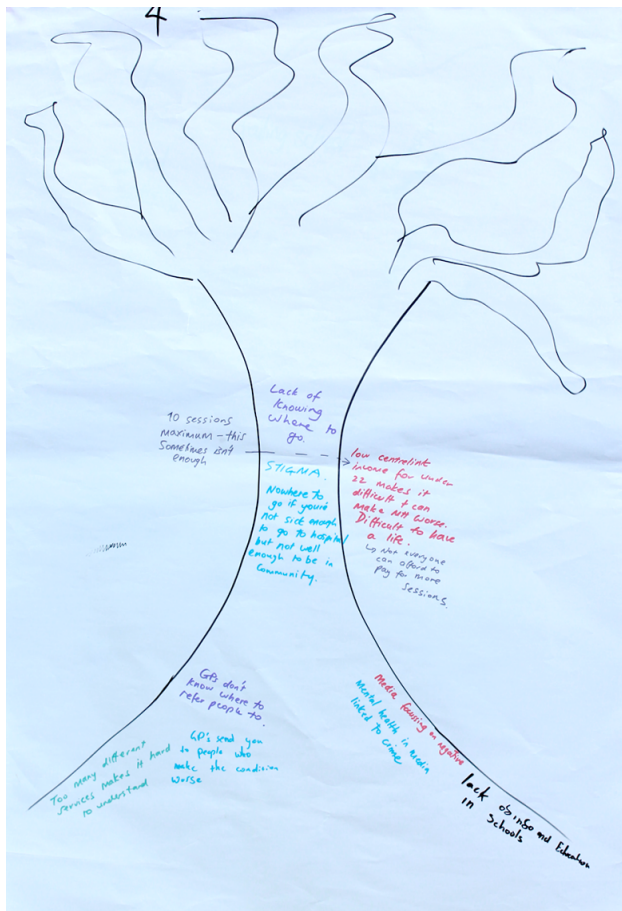 4
Lack of
knowing
where to
go.
10 sessions
maximum - this
sometimes isn't
enough
STIGMA.
Nowhere to
go if you're
not sick enough
to go to hospital
but not well
enough to be in
community.
low centrelink
income for under
22 makes it
difficult + can
make MH worse.
Difficult to have
a life.
↳ Not everyone
can afford to
pay for more
sessions.
GPs don't
know where to
refer people to.
GP's send you
to people who
make the condition
worse
Too many different
services makes it hard
to understand
Media focusing on negative
Mental health in media
linked to crime
lack of info and Education
in Schools